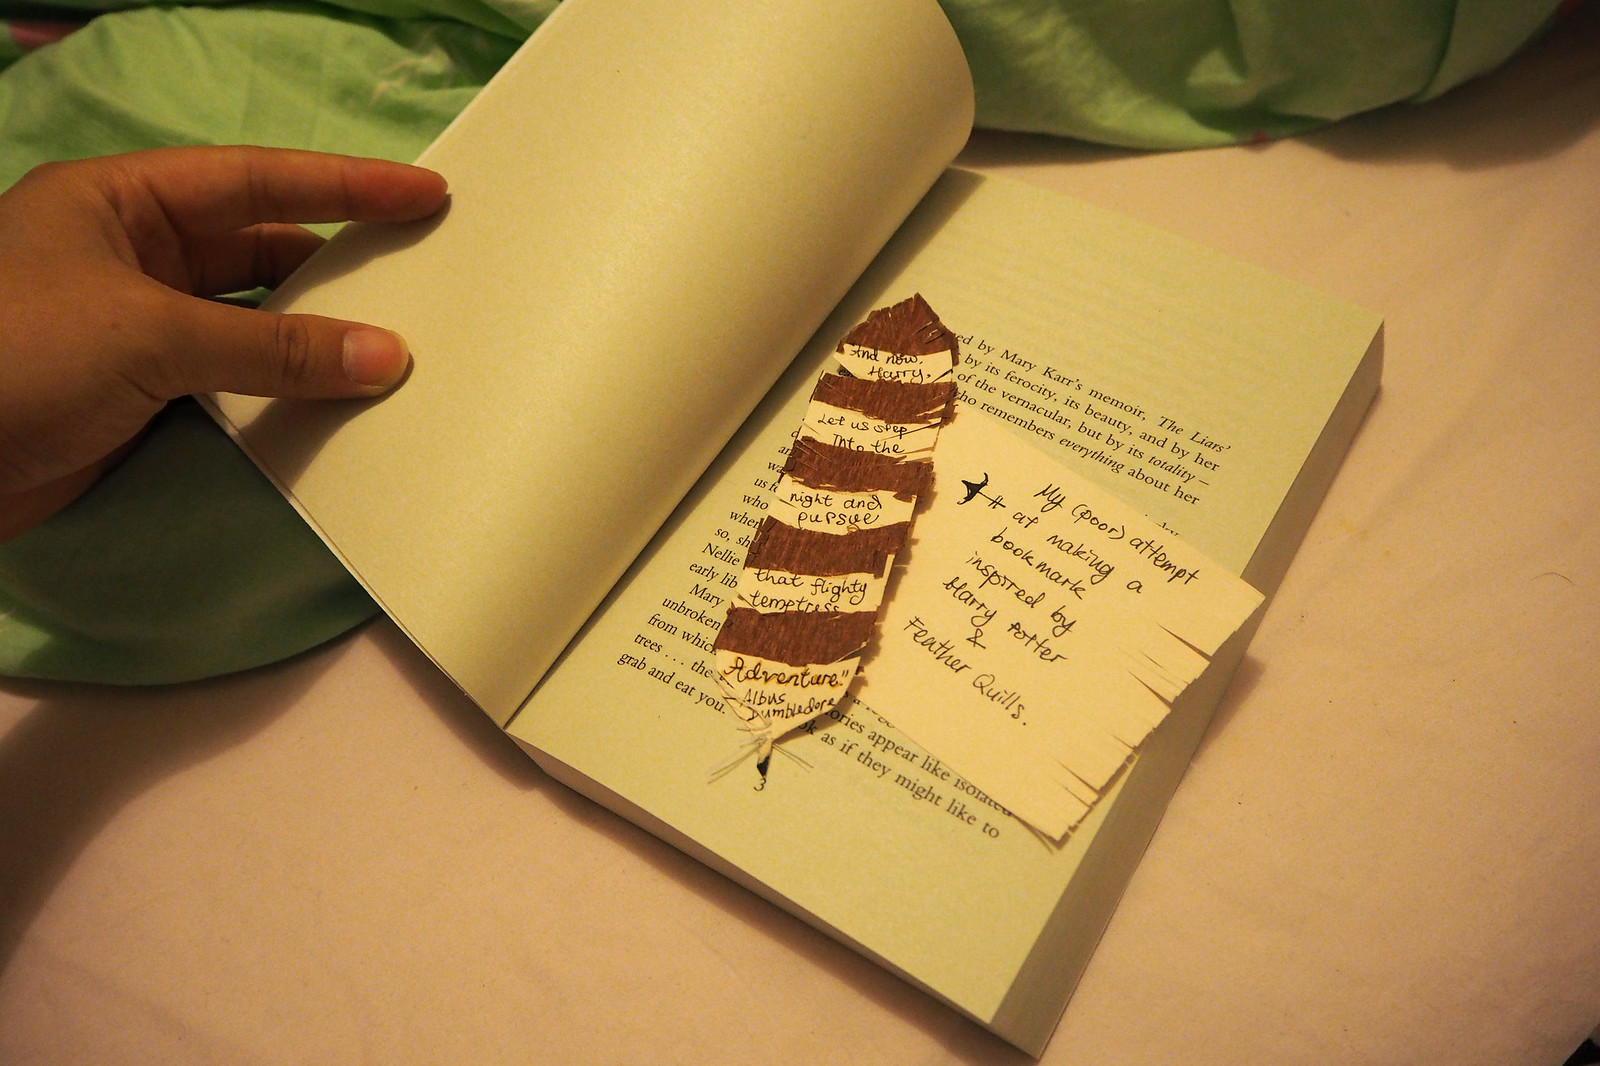 ed by Mary Karr's memoir, The Liars'
by its ferocity, its beauty, and by her
of the vernacular, but by its totality –
who remembers everything about her
us
who
when
so, sh
Nellie
early lib
Mary
unbroken
from which
trees . . . the
grab and eat you.
ories appear like isolated
as if they might like to
3
"And now,
Harry,
Let us step
Into the
night and
pursue
that flighty
temptress
Adventure."
Albus
Dumbledore
My (poor) attempt
at making a
bookmark
inspired by
Harry Potter
&
Feather Quills.